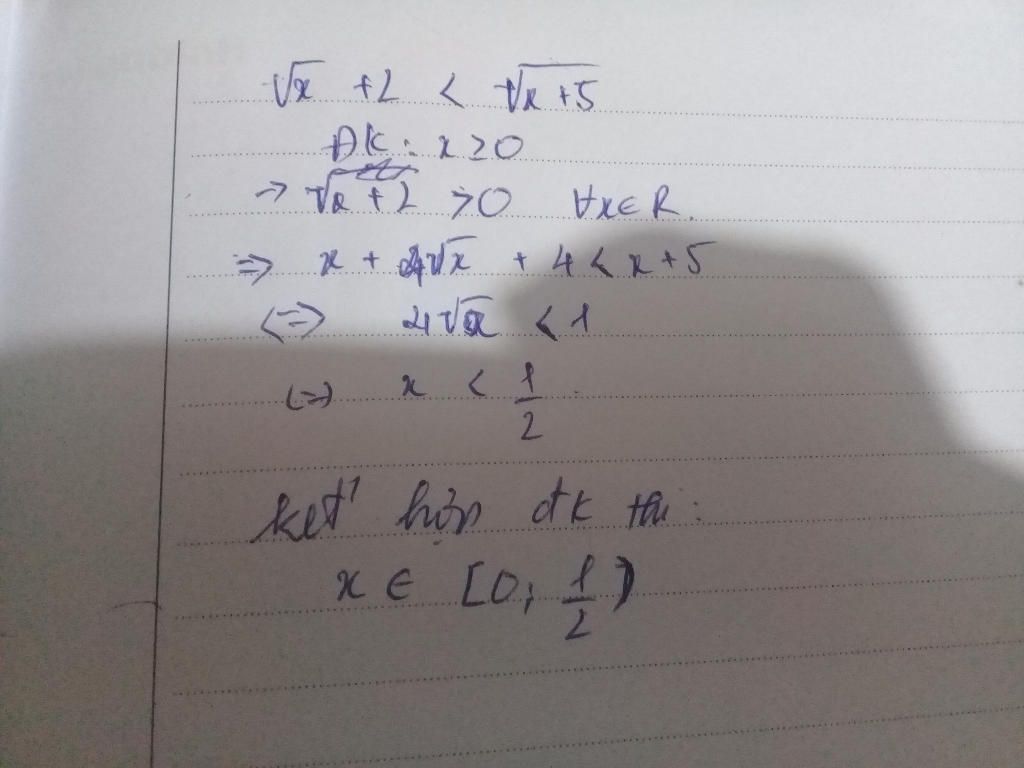 √x + 2 < √(x+5)
ĐK: x ≥ 0
=> √x + 2 > 0 ∀x ∈ R.
=> x + 4√x + 4 < x + 5
<=> 4√x < 1
<=> x < 1/2
kết hợp đk thì:
x ∈ [0; 1/2)